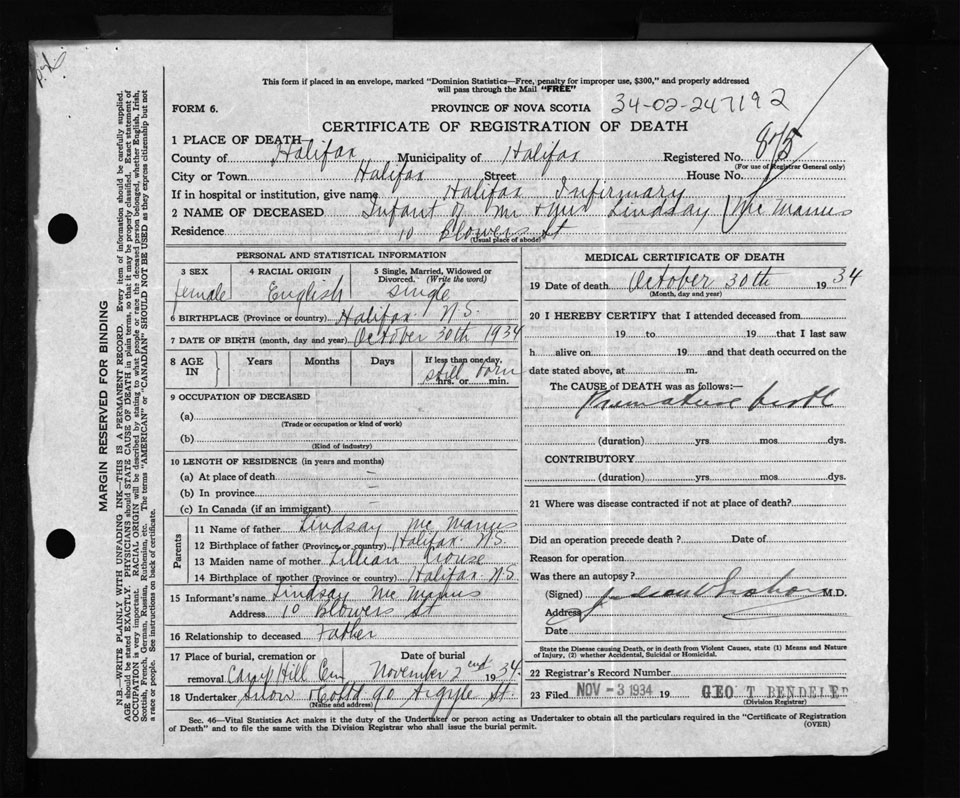 This form if placed in an envelope, marked "Dominion Statistics—Free, penalty for improper use, $300," and properly addressed
will pass through the Mail "FREE"
FORM 6. PROVINCE OF NOVA SCOTIA 34-02-247192
CERTIFICATE OF REGISTRATION OF DEATH
1 PLACE OF DEATH
County of Halifax Municipality of Halifax Registered No. 875
(For use of Registrar General only)
City or Town Halifax Street House No.
If in hospital or institution, give name Halifax Infirmary
2 NAME OF DECEASED Infant of Mr & Mrs Lindsay McManus
Residence 10 Blowers St
(Usual place of abode)
PERSONAL AND STATISTICAL INFORMATION
3 SEX 4 RACIAL ORIGIN 5 Single, Married, Widowed or
Divorced. (Write the word)
female English single
6 BIRTHPLACE (Province or country) Halifax N.S.
7 DATE OF BIRTH (month, day and year) October 30th 1934
8 AGE IN Years Months Days If less than one day,
still born
hrs. or min.
9 OCCUPATION OF DECEASED
(a)
(Trade or occupation or kind of work)
(b)
(Kind of industry)
10 LENGTH OF RESIDENCE (in years and months)
(a) At place of death –
(b) In province –
(c) In Canada (if an immigrant) –
Parents
11 Name of father Lindsay McManus
12 Birthplace of father (Province or country) Halifax N.S.
13 Maiden name of mother Lillian Crouse
14 Birthplace of mother (Province or country) Halifax N.S.
15 Informant's name Lindsay McManus
Address 10 Blowers St
16 Relationship to deceased Father
17 Place of burial, cremation or Date of burial
removal Camp Hill Cem November 2nd 1934
18 Undertaker Snow & Co Ltd 90 Argyle St.
(Name and address)
MEDICAL CERTIFICATE OF DEATH
19 Date of death October 30th 1934
(Month, day and year)
20 I HEREBY CERTIFY that I attended deceased from
19 to 19 that I last saw
h alive on 19 and that death occurred on the
date stated above, at m.
The CAUSE of DEATH was as follows:—
Premature birth
(duration) yrs. mos. dys.
CONTRIBUTORY
(duration) yrs. mos. dys.
21 Where was disease contracted if not at place of death?
Did an operation precede death? Date of
Reason for operation
Was there an autopsy?
(Signed) M.D.
Address
Date
State the Disease causing Death, or in death from Violent Causes, state (1) Means and Nature
of Injury, (2) whether Accidental, Suicidal or Homicidal.
22 Registrar's Record Number
23 Filed NOV -3 1934 19 GEO T BENDELER
(Division Registrar)
Sec. 46—Vital Statistics Act makes it the duty of the Undertaker or person acting as Undertaker to obtain all the particulars required in the "Certificate of Registration
of Death" and to file the same with the Division Registrar who shall issue the burial permit. (OVER)
MARGIN RESERVED FOR BINDING
N.B.—WRITE PLAINLY WITH UNFADING INK—THIS IS A PERMANENT RECORD. Every item of information should be carefully supplied.
AGE should be stated EXACTLY. PHYSICIANS should STATE CAUSE OF DEATH in plain terms, so that it may be properly classified. Exact statement of
OCCUPATION is very important. RACIAL ORIGIN will be described by stating to what people or race the deceased person belonged, whether English, Irish,
Scottish, French, German, Russian, Ruthenian, etc. The terms "AMERICAN" or "CANADIAN" SHOULD NOT BE USED as they express citizenship but not
a race or people. See instructions on back of certificate.